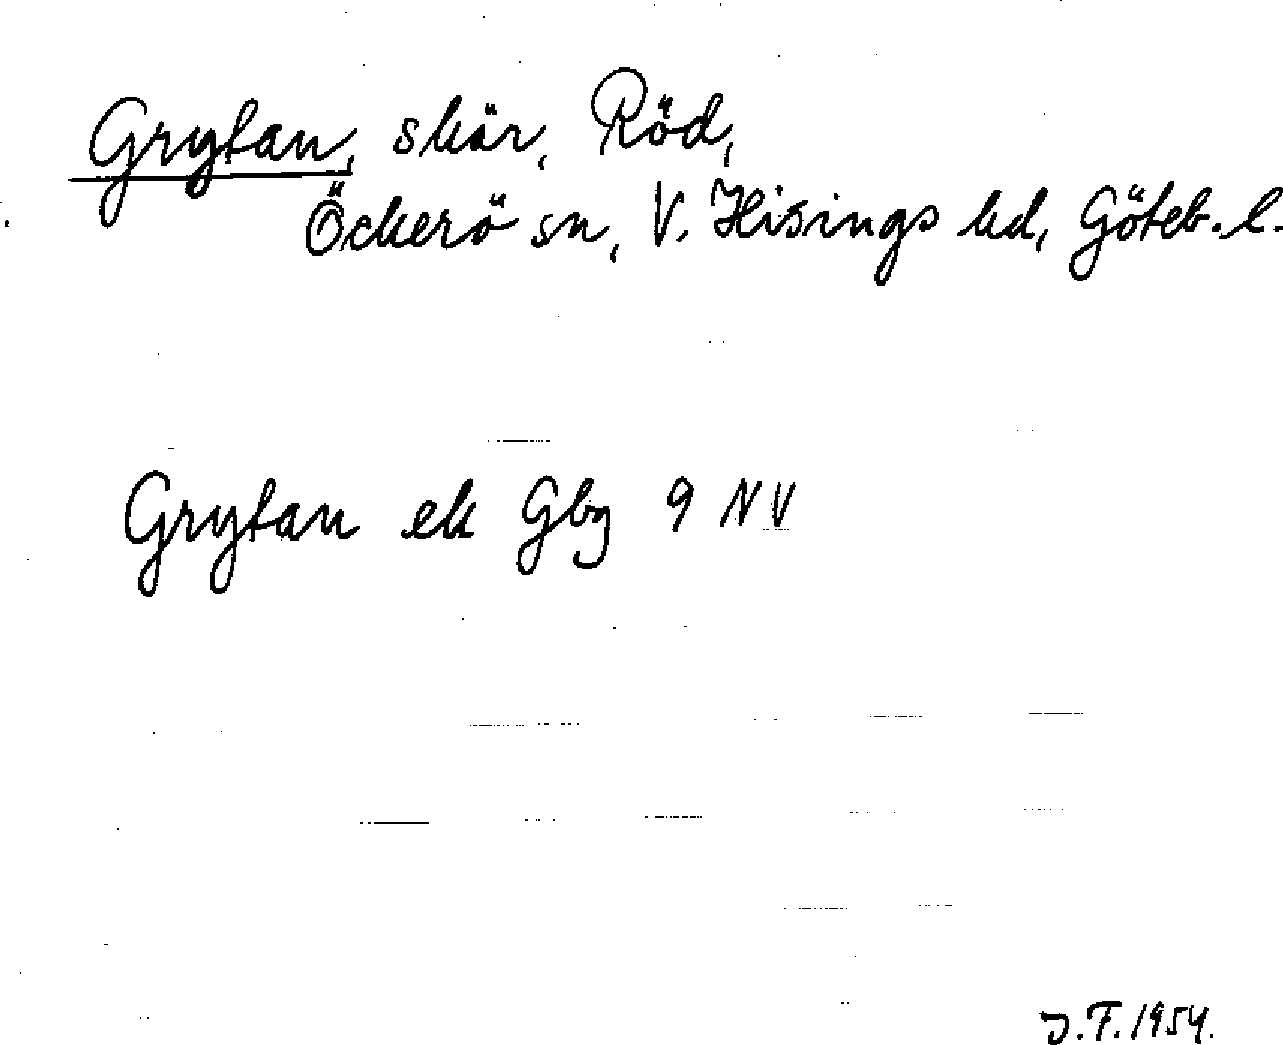 Grytan, skär, Röd,
Öckerö sn, V. Hisings hd, Göteb. l.
Grytan ek Gbg 9 NV
J.F. 1954.